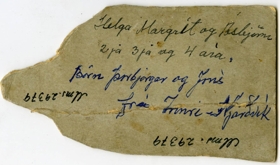 Helga Margrét og Ásbjörn
2já 3já og 4 ára,
Börn Þorbjörger og Jóns
frá Innri-Njarðvík
Mms. 29379
Mms. 29379